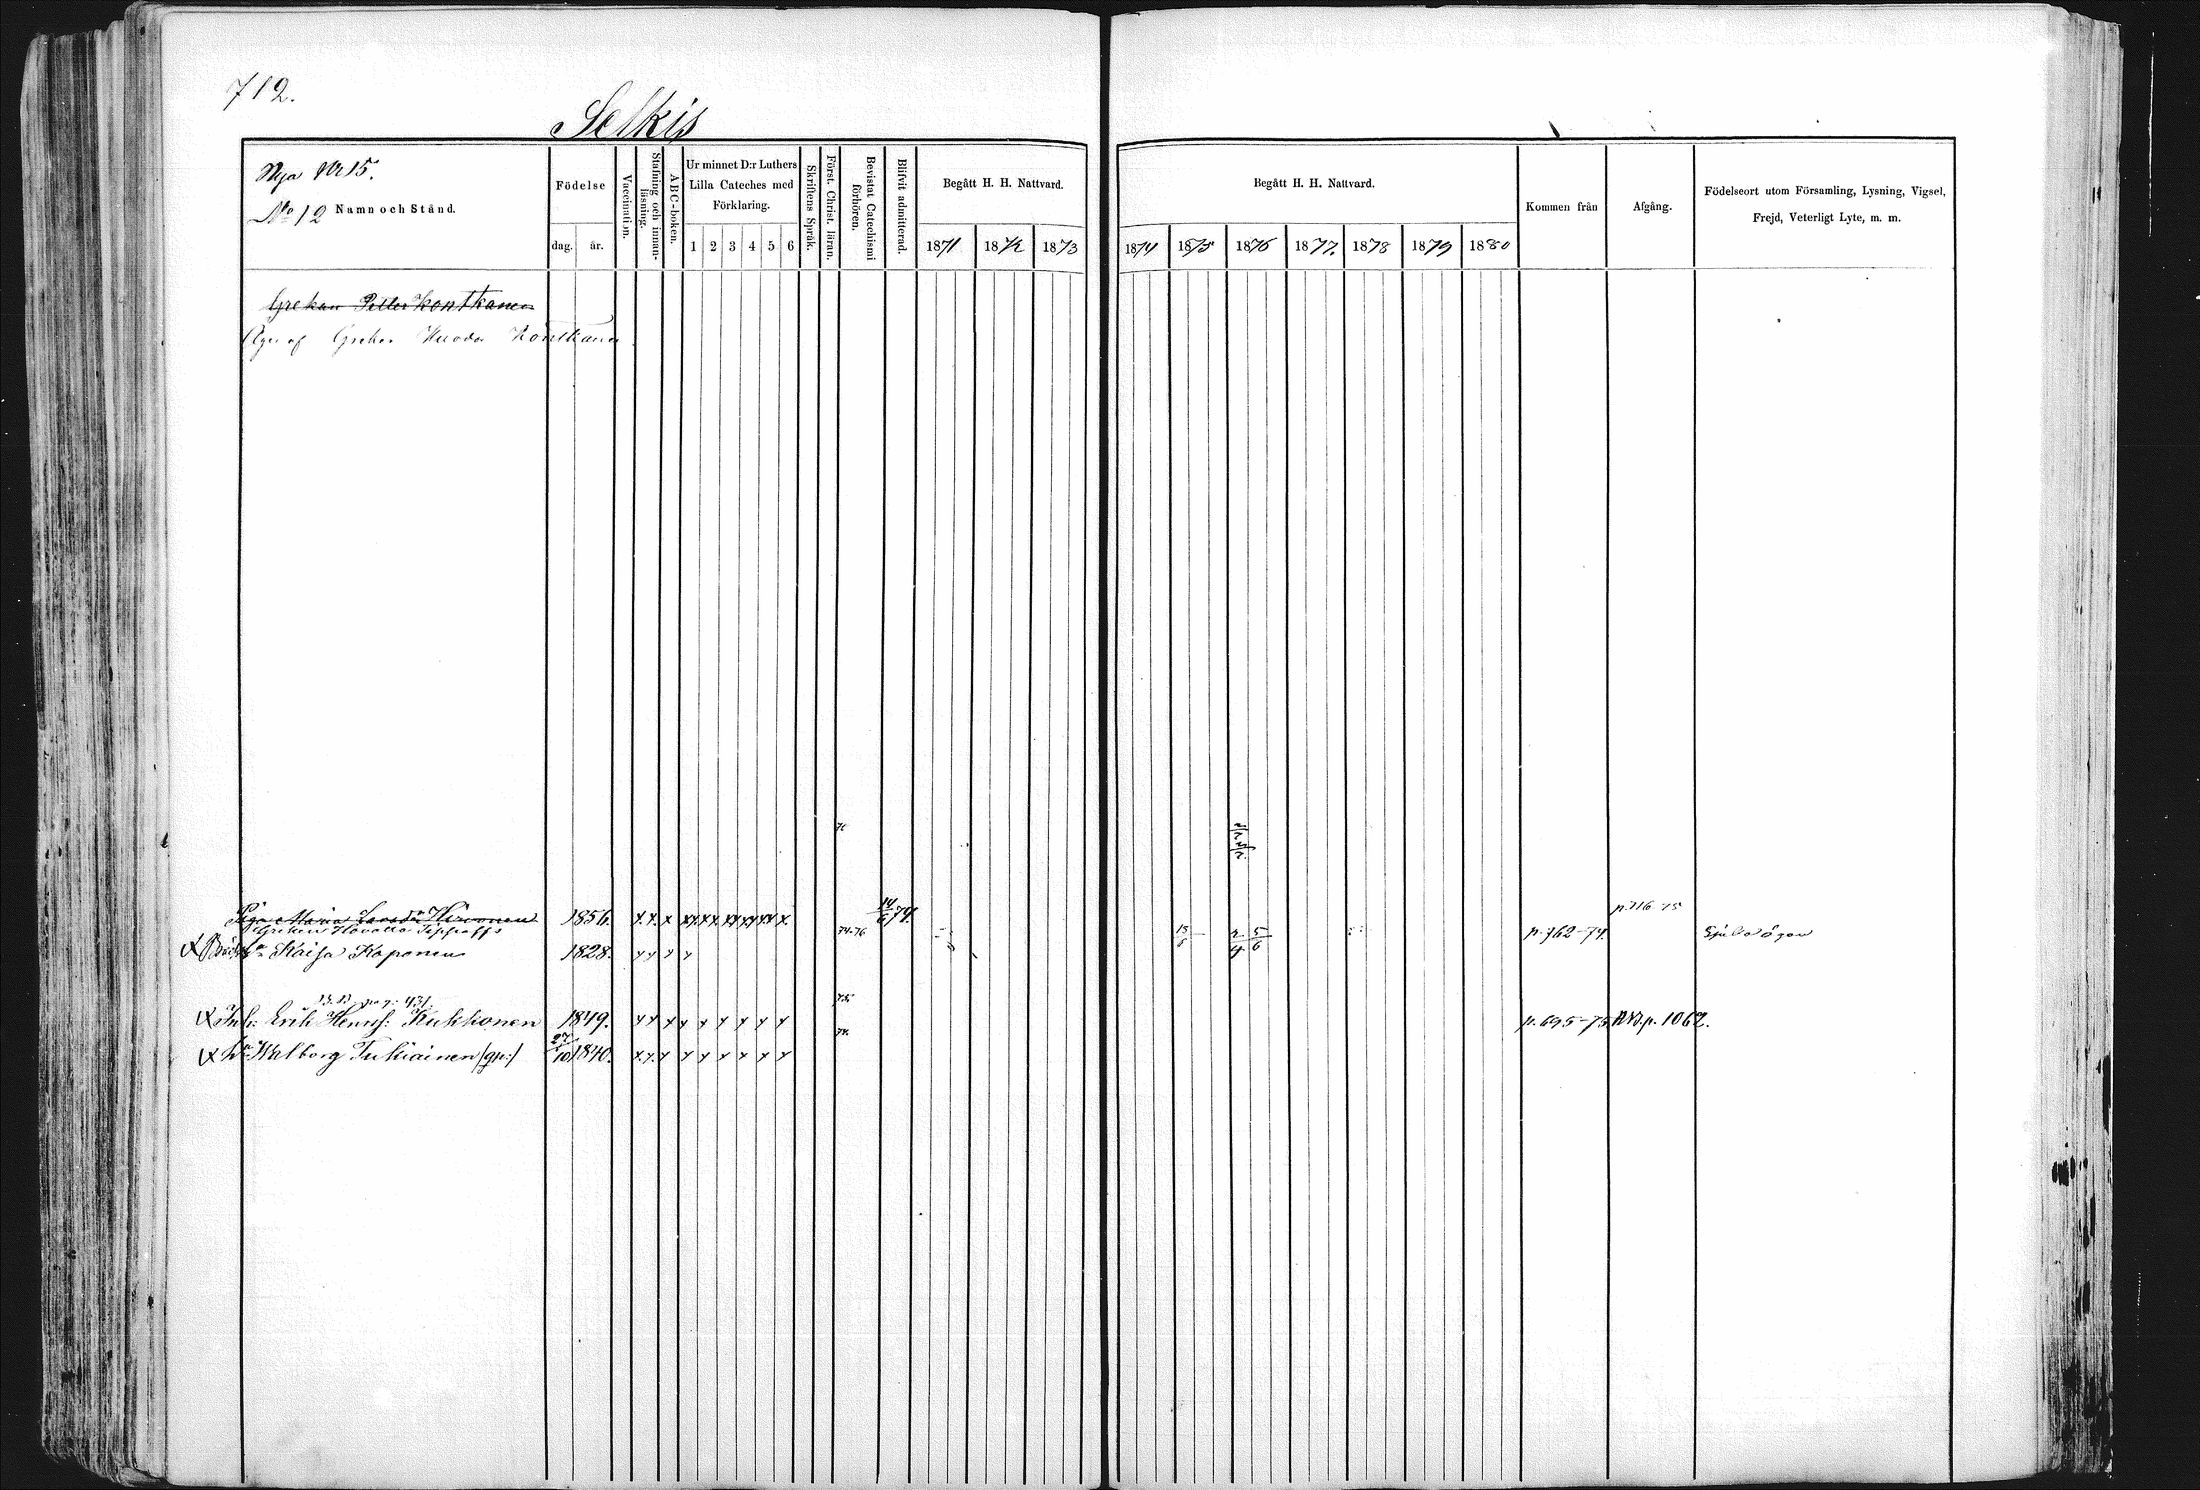 712.
Selkis
Nya Nr 15.
No 12 Namn och Stånd.
Födelse
dag. år.
Vaccination.
Stafning och innan-läsning.
ABC-boken.
Ur minnet D:r Luthers
Lilla Cateches med
Förklaring.
1 2 3 4 5 6
Skriftens Språk.
Först. Christ. läran.
Bevistat Catechismi
förhören.
Blifvit admitterad.
Begått H. H. Nattvard.
1871 1872 1873
Begått H. H. Nattvard.
1874 1875 1876 1877. 1878 1879 1880
Kommen från
Afgång.
Födelseort utom Församling, Lysning, Vigsel,
Frejd, Veterligt Lyte, m. m.
Greken Petter Kontkanen
Äges af Greken Huoda Kontkanen
Piga Maria Larsdr Hirvonen 1856. x x x 14/6 74. p. 716-75
Greken 74-76 p. 762-74.
Kaisa Koponen 1828. 15/8 2/4 5/6
pag: 431. 75
Inh: Erik Henrss: Kukkonen 1849. x x x x x x x x x p. 695-75 p. 1062.
H:u Walborg Tukiainen 27/10 1840. x x x x x x x x x